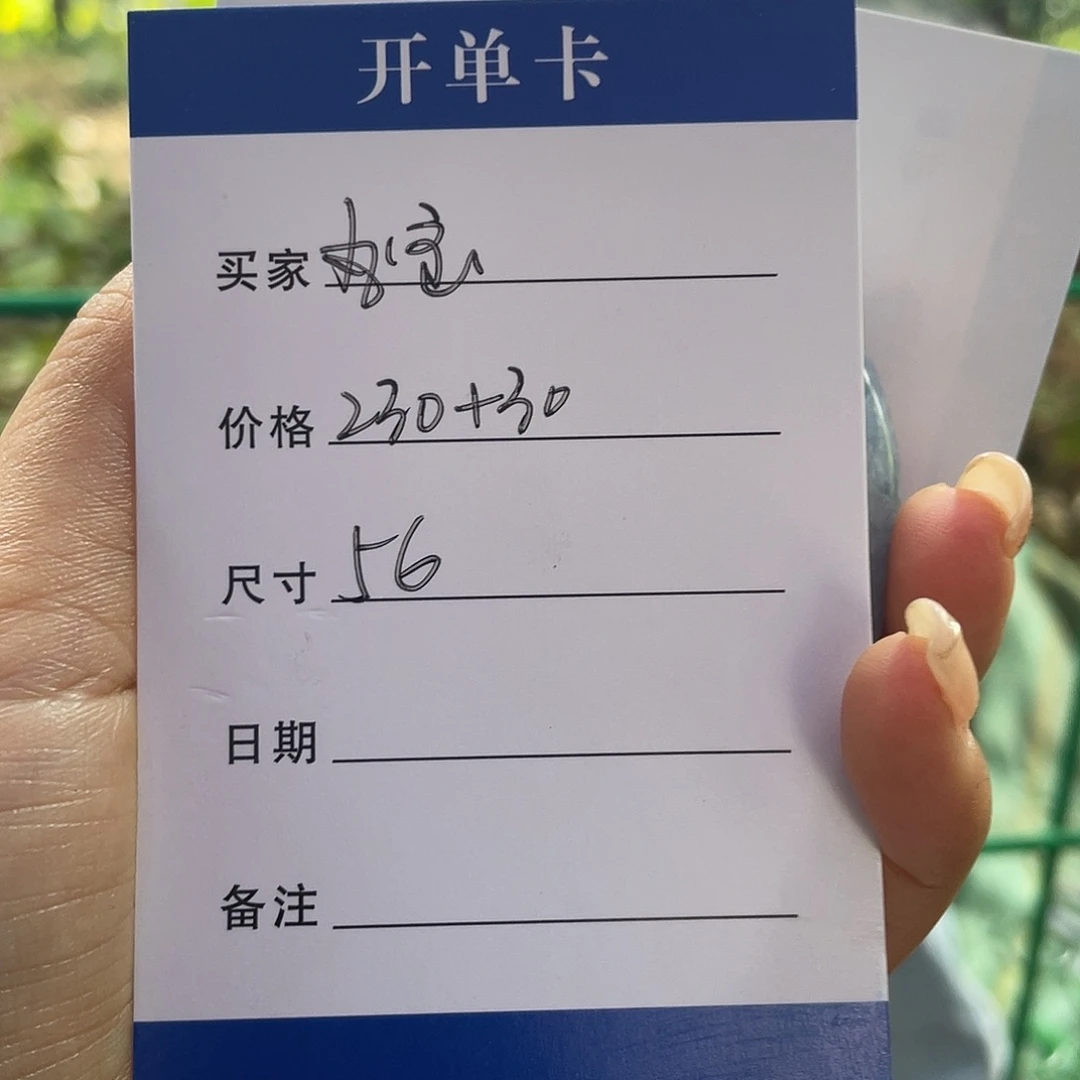 开单卡
买家
价格 230+30
尺寸 56
日期
备注